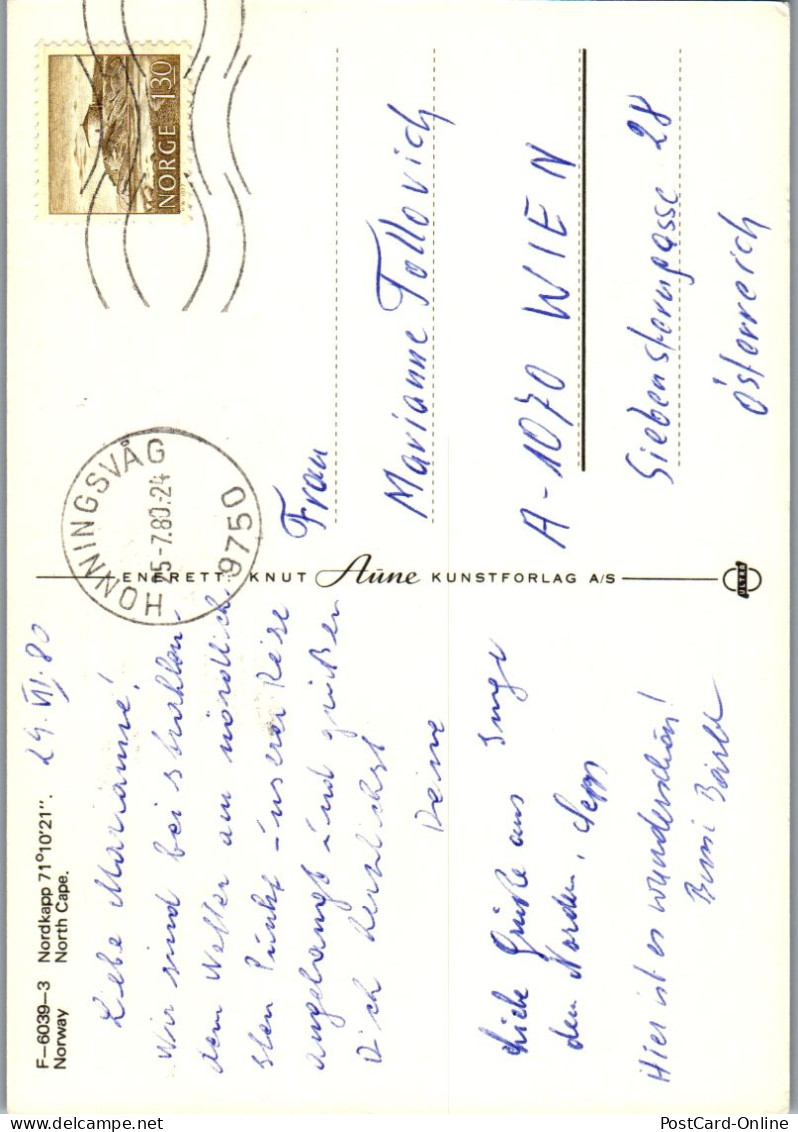 F–6039–3 Nordkapp 71°10'21".
Norway North Cape.
24.VII.80
Liebe Marianne!
Wir sind bei strahlen-
dem Wetter am nördlich-
sten Punkt unserer Reise
angelangt und grüßen
Dich herzlichst
Deine
Inge
Liebe Grüße aus
dem Norden, Sepp
Hier ist es wunderschön!
ENERETT: KNUT Aune KUNSTFORLAG A/S
NORGE 130
HONNINGSVÅG
25-7.80.-24
9750
Frau
Marianne Tollovich
A-1070 WIEN
Siebensterngasse 28
Österreich
PostCard-Online